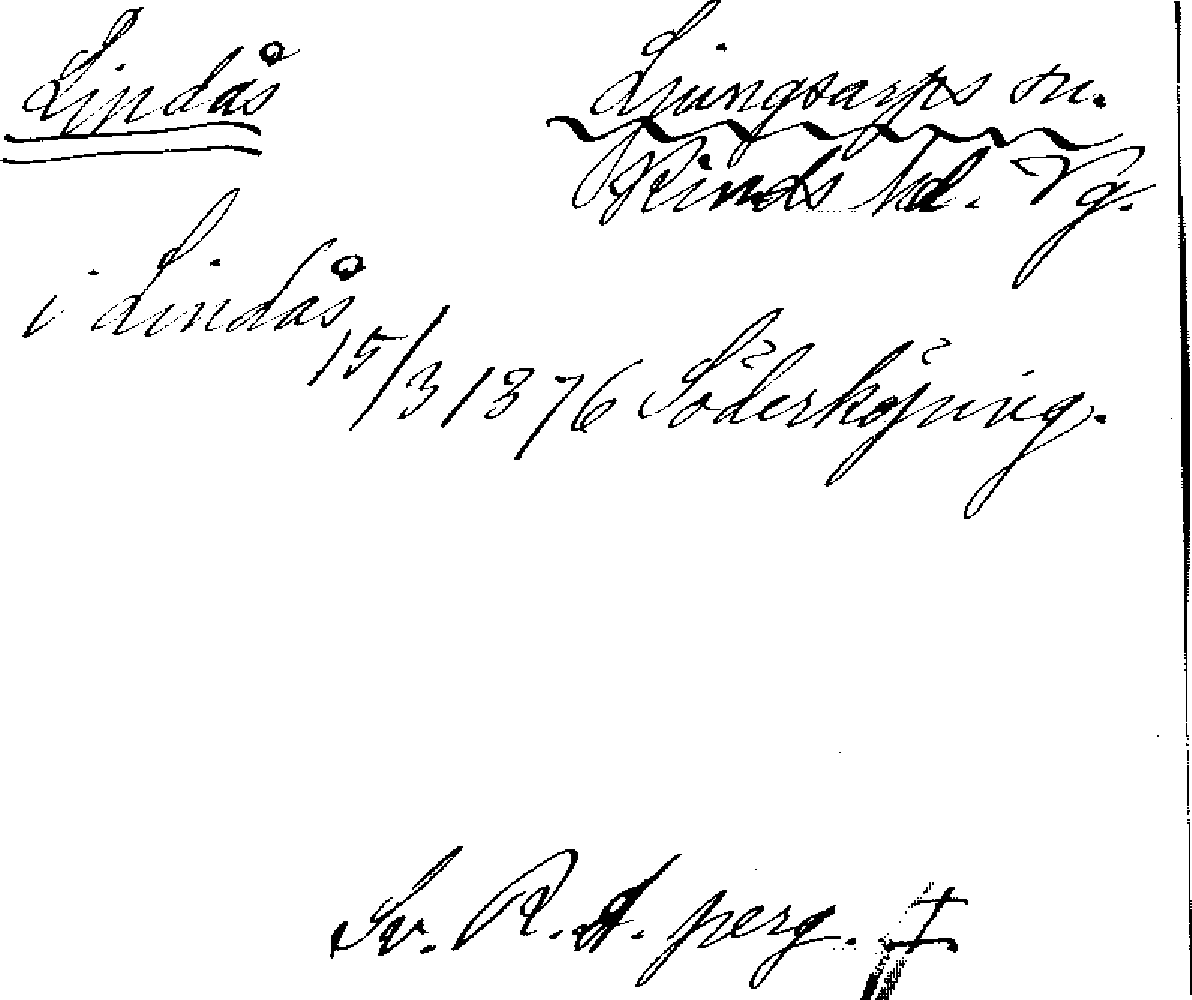 Lindås
Ljungsarps sn.
Kinds hd. Vg.
i Lindås 15/3 1376 Söderköping.
Sv. R. A. perg.